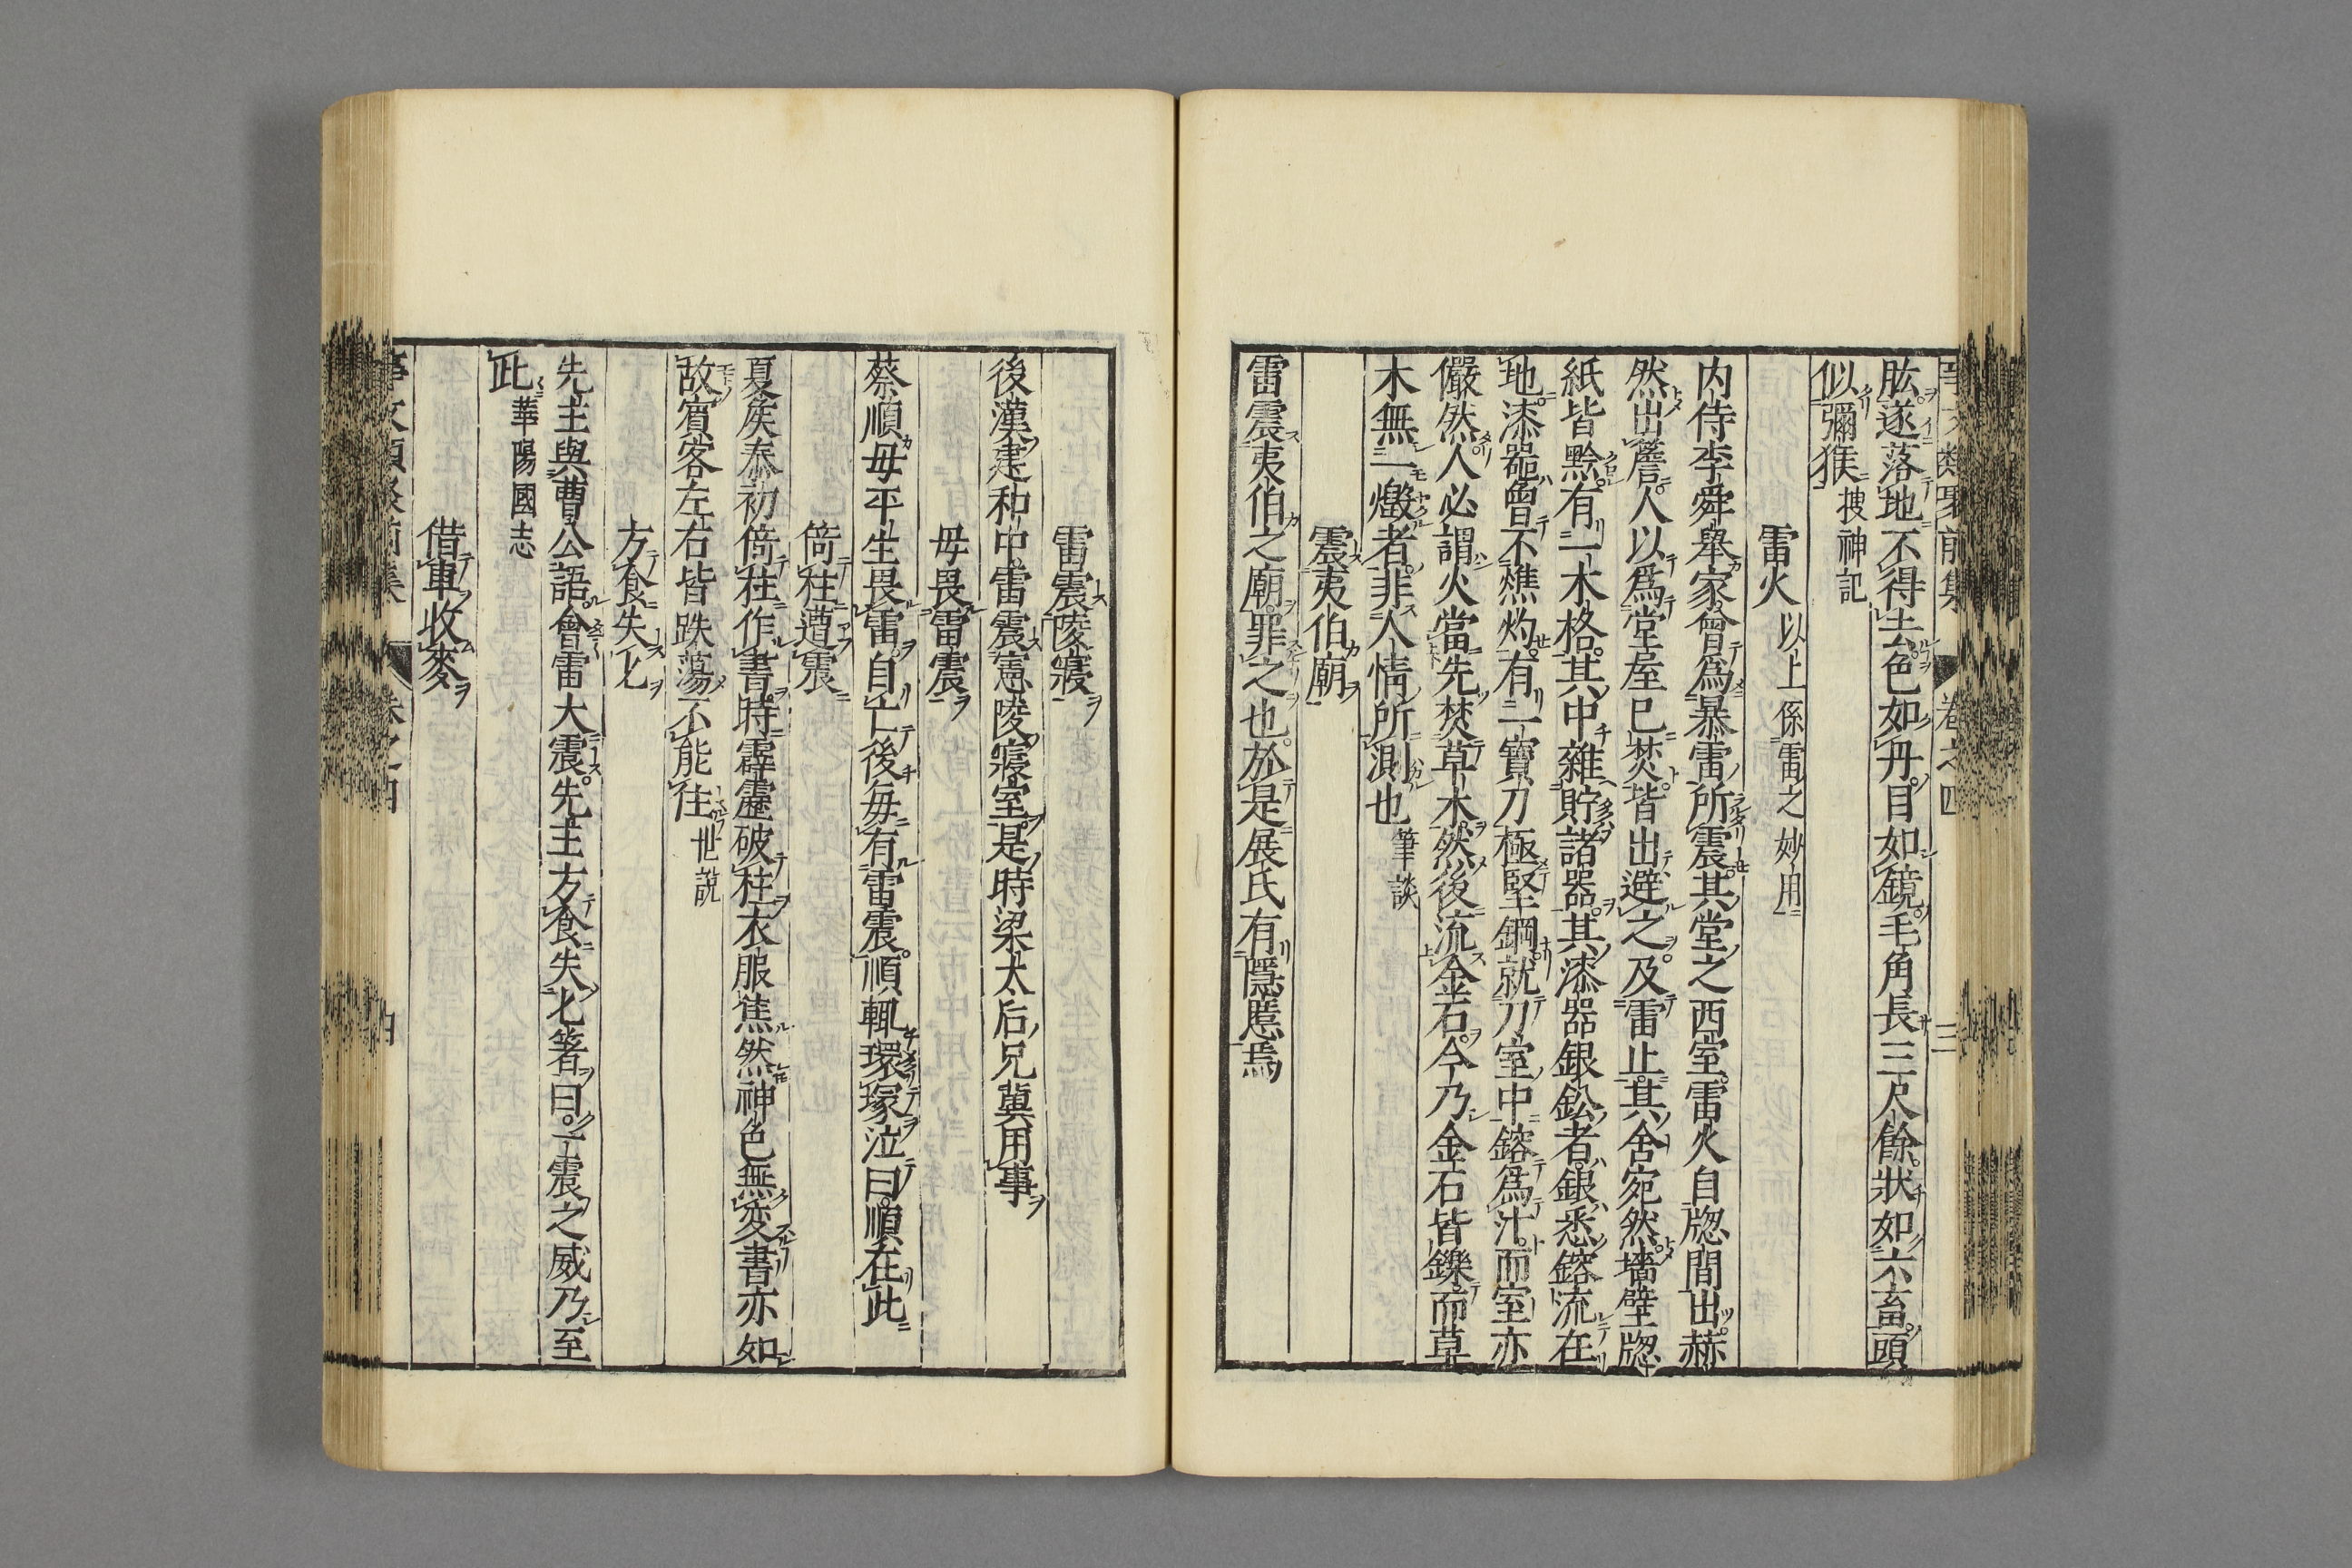 事文類聚前集 卷之四 三
肱遂落地不得去色如丹目如鏡毛角長三尺餘狀如六畜頭
似獼猴 搜神記
雷火 以上係雷之妙用
内侍李舜舉家曾爲暴雷所震其堂之西室雷火自牎間出赫
然出簷人以爲堂屋已焚皆出避之及雷止其舍宛然墻壁牎
紙皆黔有一木格其中雜貯諸器其漆器銀釦者銀悉鎔流在
地漆器曾不燋灼有一寶刀極堅鋼就刀室中鎔爲汁而室亦
儼然人必謂火當先焚草木然後流金石今乃金石皆鑠而草
木無一燬者非人情所測也 筆談
震夷伯廟
雷震夷伯之廟罪之也於是展氏有隱慝焉
雷震陵寢
後漢建和中雷震憲陵寢室是時梁太后兄冀用事
毋畏雷震
蔡順毋平生畏雷自亡後每有雷震順輒環塚泣曰順在此
倚柱遭震
夏矦泰初倚柱作書時霹靂破柱衣服焦然神色無变書亦如
故賓客左右皆跌蕩不能住 世說
方食失匕
先主與曹公語會雷大震先主方食失匕箸曰一震之威乃至
此 華陽國志
借車收麥
事文類聚前集 卷之四 四